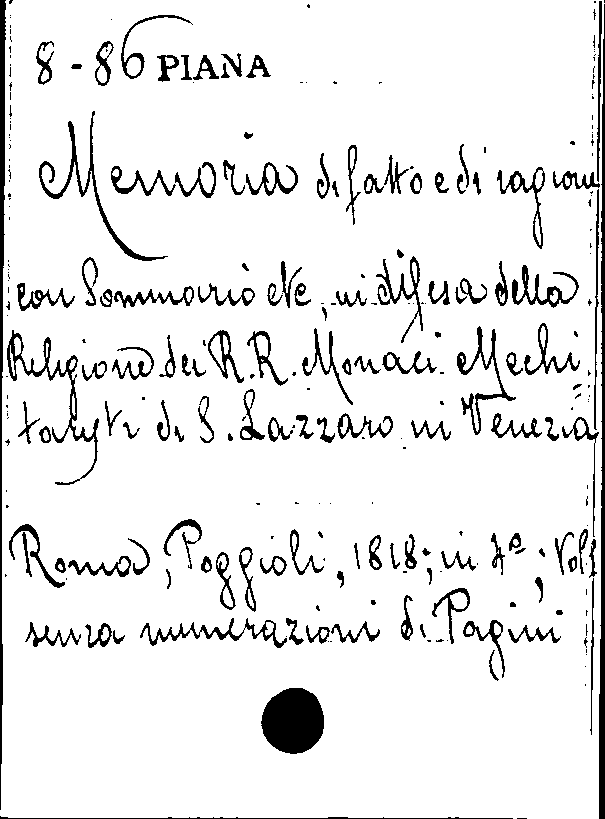 8-86 PIANA
Memoria di fatto e di ragione
con Sommario etc, in difesa della
Religione dei R.R. Monaci Mechi=
taristi di S. Lazzaro in Venezia
Roma, Poggioli, 1818; in 4º; Vol 1
senza numerazioni di Pagini